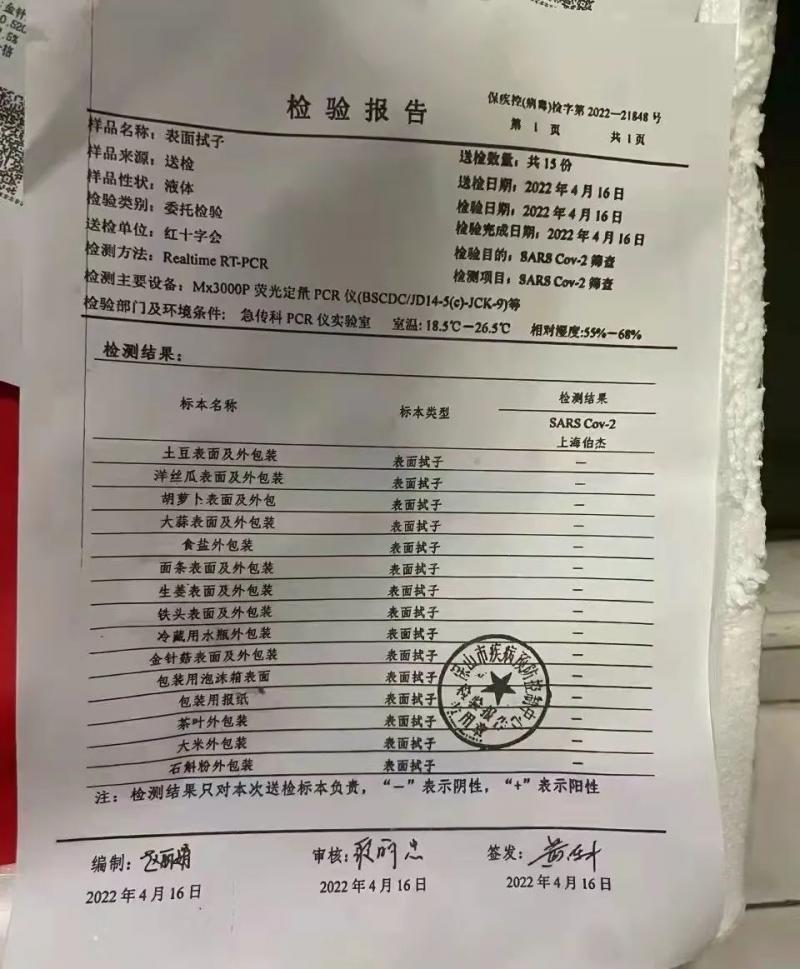 金针
0.52L
.5%
格
检验报告
保疾控(病毒)检字第 2022—21848 号
第 1 页 共 1 页
样品名称：表面拭子
样品来源：送检 送检数量：共 15 份
样品性状：液体 送检日期：2022 年 4 月 16 日
检验类别：委托检验 检验日期：2022 年 4 月 16 日
送检单位：红十字会 检验完成日期：2022 年 4 月 16 日
检测方法：Realtime RT-PCR 检验目的：SARS Cov-2 筛查
检测项目：SARS Cov-2 筛查
检测主要设备：Mx3000P 荧光定量 PCR 仪(BSCDC/JD14-5(c)-JCK-9)等
检验部门及环境条件：急传科 PCR 仪实验室 室温：18.5℃－26.5℃ 相对湿度:55%－68%
检测结果：
标本名称 标本类型 检测结果
SARS Cov-2
上海伯杰
土豆表面及外包装 表面拭子 —
洋丝瓜表面及外包装 表面拭子 —
胡萝卜表面及外包 表面拭子 —
大蒜表面及外包装 表面拭子 —
食盐外包装 表面拭子 —
面条表面及外包装 表面拭子 —
生姜表面及外包装 表面拭子 —
铁头表面及外包装 表面拭子 —
冷藏用水瓶外包装 表面拭子 —
金针菇表面及外包装 表面拭子 —
包装用泡沫箱表面 表面拭子 —
包装用报纸 表面拭子 —
茶叶外包装 表面拭子 —
大米外包装 表面拭子 —
石斛粉外包装 表面拭子 —
山市疾病预防控制中心
检验报告
专用章
注：检测结果只对本次送检标本负责，“—”表示阴性，“+”表示阳性
编制： 审核： 签发：
2022 年 4 月 16 日 2022 年 4 月 16 日 2022 年 4 月 16 日